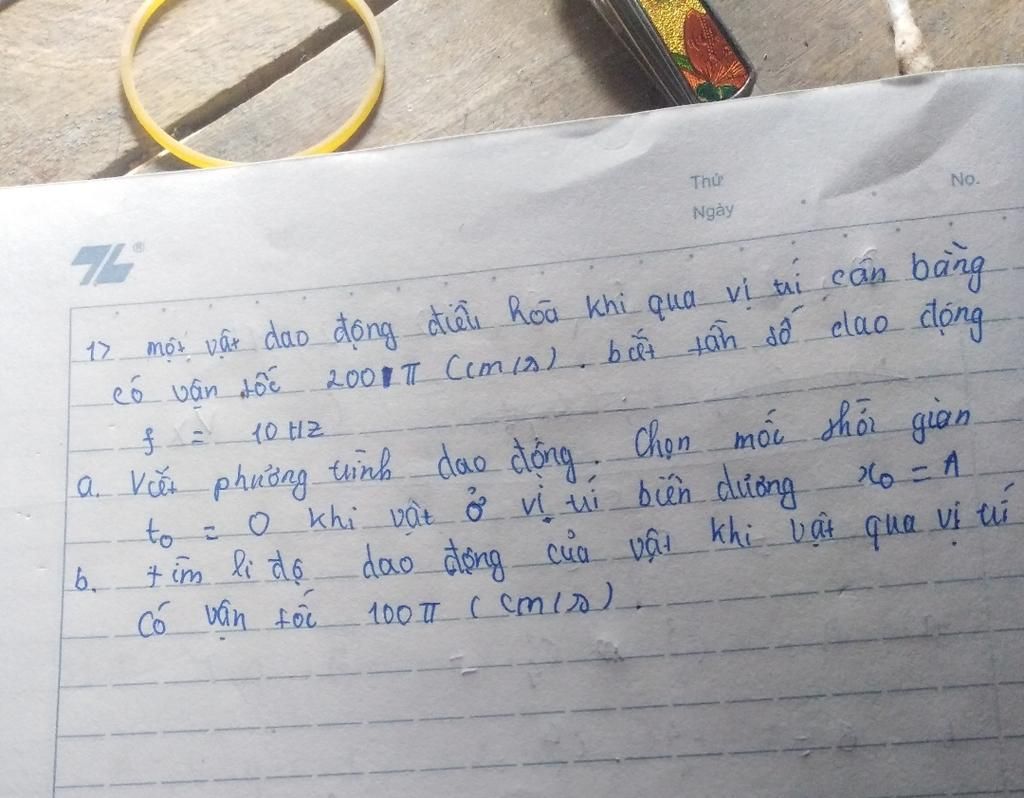 Thứ
No.
Ngày
1> một vật dao động điều hòa khi qua vị trí cân bằng
có vận tốc 200π (cm/s). biết tần số dao động
f = 10 HZ
a. Viết phương trình dao động. Chọn mốc thời gian
t₀ = 0 khi vật ở vị trí biên dương x₀ = A
b. tìm li độ dao động của vật khi vật qua vị trí
Có vận tốc 100π (cm/s).